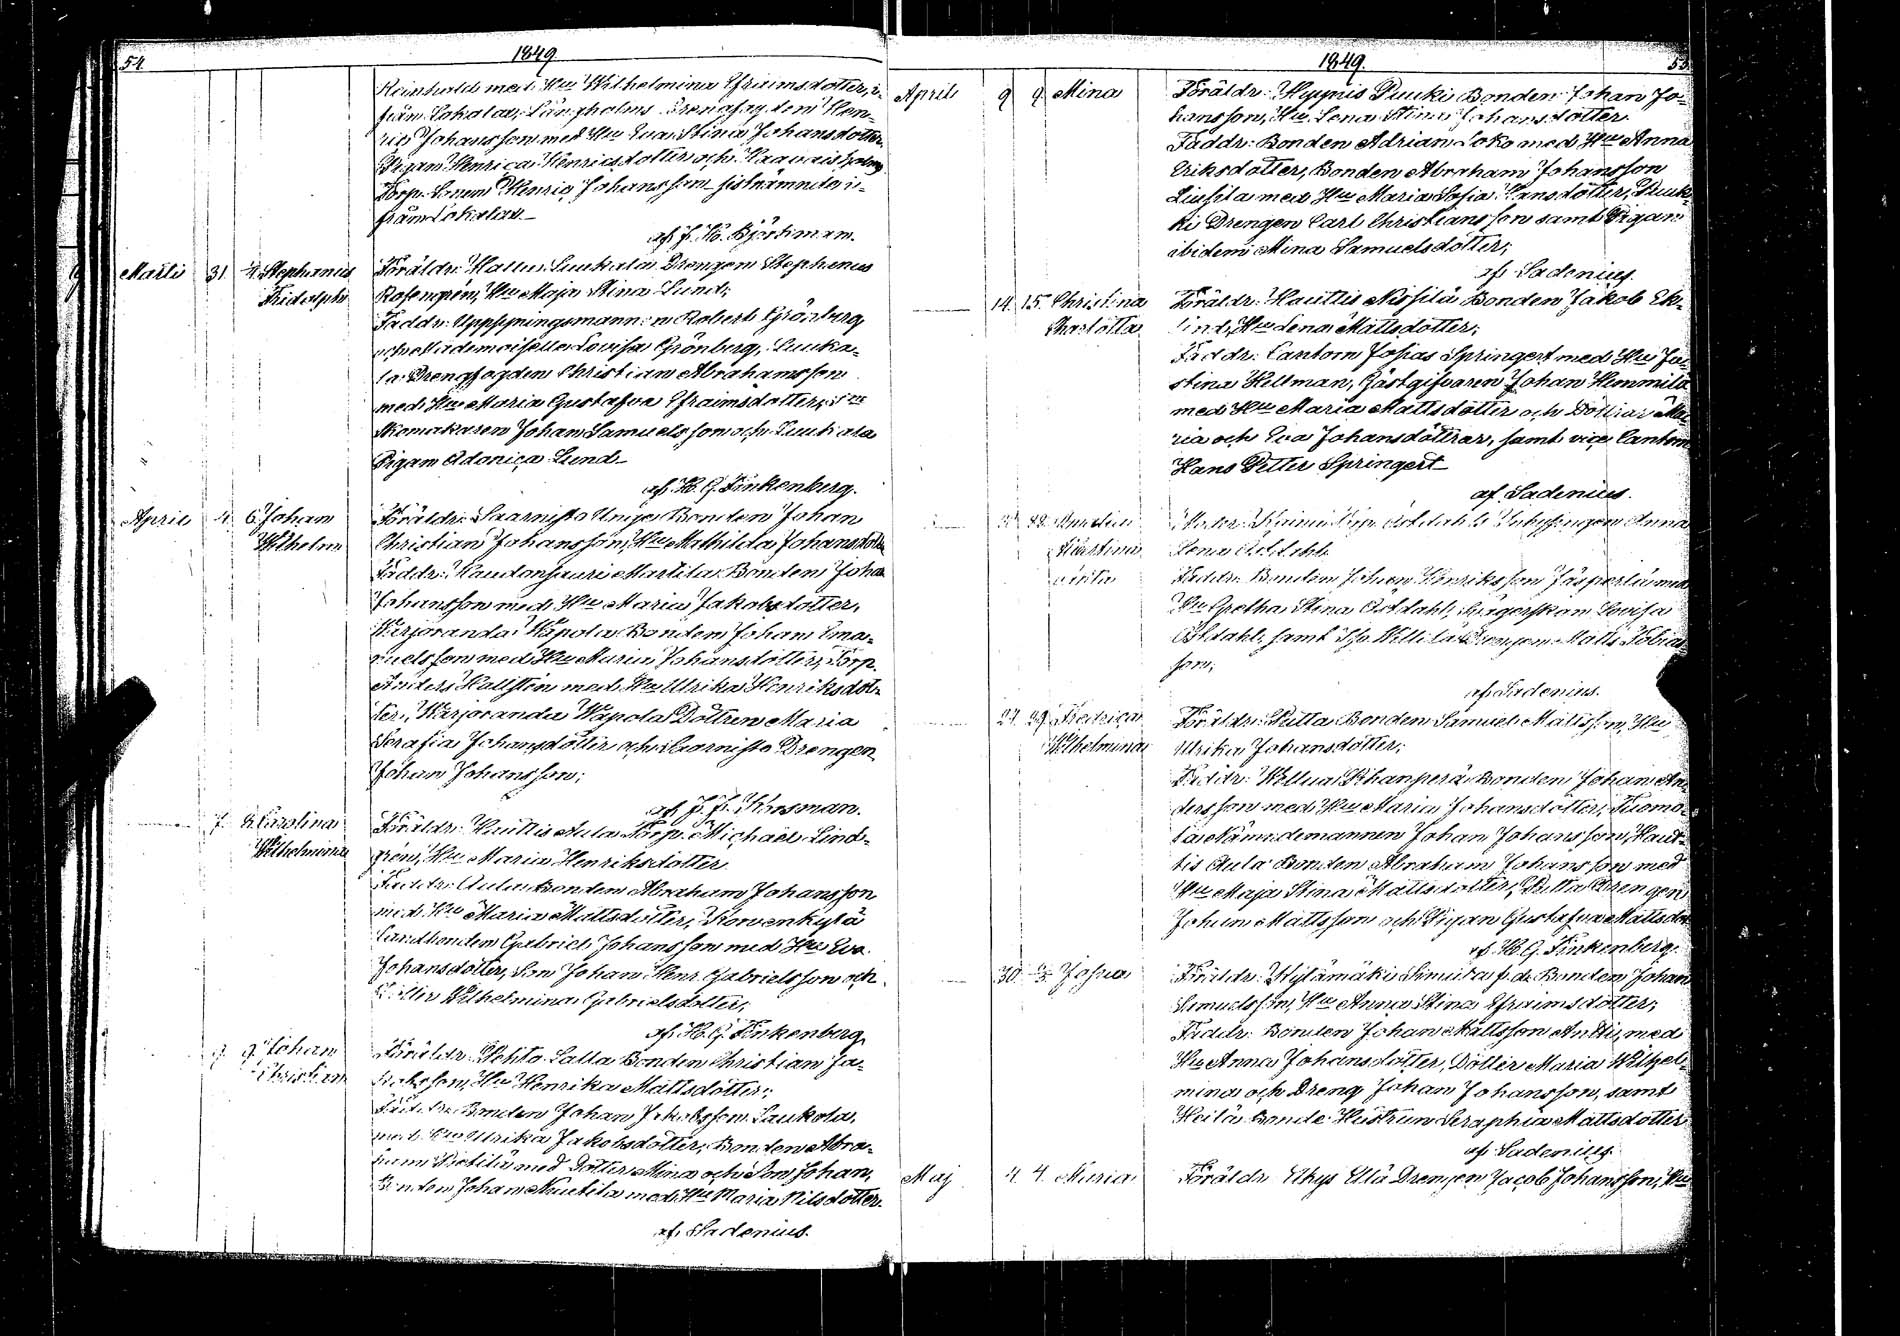 54.
1849
Reinholds med Hu Wilhelmina Efraimsdotter, i-
från Lokalax, Långholms Drengfogden Hen-
ric Johansson med Hu Eva Stina Johansdotter
Pigan Henrica Henricsdotter och
Torp. Sonen Henric Johansson sistnämnde i-
från Lokalax.
af J. H. Björkman.
Martii 31. Stephanus
Fridolph
Föräldr: Kallus Luukala Drengen Stephenus
Rosengrén, Hu Maja Stina Lund;
Faddr: Uppsyningsmannen Robert Grönberg
och Mademoiselle Lovisa Grönberg, Luuka-
la Drengfogden Christian Abrahamsson
med Hu Maria Gustafva Efraimsdotter,
Skomakaren Johan Samuelsson och Luukala
Pigan Adonica Lund.
af H. G. Finkenberg.
April 4. 6. Johan
Wilhelm
Föräldr: Saarnisto Bonden Johan
Christian Johansson, Hu Mathilda Johansdotter
Faddr: Martila Bonden Johan
Johansson med Hu Maria Jakobsdotter,
Warjoranda Wäpola Bonden Johan Ema-
nuelsson med Hu Maria Johansdotter, Torp.
Anders Hallstén med Hu Ulrika Henriksdot-
ter, Warjoranda Wäpola Dottren Maria
Serafia Johansdotter och Saarnisto Drengen
Johan Johansson;
af J. F. Krosman.
7. 8. Carolina
Wilhelmina
Föräldr: Hauttis Aula Torp. Michael Lind-
grén, Hu Maria Henriksdotter
Faddr: Aula Bonden Abraham Johansson
med Hu Maria Mattsdotter, Korvenkylä
Landbonden Gabriel Johansson med Hu Eva
Johansdotter, Son Johan Henr. Gabrielsson och
Dotter Wilhelmina Gabrielsdotter;
af H. G. Finkenberg
9. 9. Johan
Christian
Föräldr: Salla Bonden Christian Ja-
kobsson, Hu Henrika Mattsdotter;
Faddr: Bonden Johan Jakobsson Laukola,
med Hu Ulrika Jakobsdotter, Bonden Abra-
ham med Dotter Mina och Son Johan,
Bonden Johan med Hu Maria Nilsdotter.
af Sadenius.
1849.
55
April 9 9. Mina
Föräldr: Hypnis Puuki Bonden Johan Jo-
hansson, Hu Lena Stina Johansdotter.
Faddr: Bonden Adrian Loko med Hu Anna
Eriksdotter, Bonden Abraham Johansson
med Hu Maria Sofia Hansdotter, Puuk-
ki Drengen Carl Christiansson samt Pigan
ibidem Mina Samuelsdotter;
af Sadenius.
14. 15. Christina
Charlotta
Föräldr: Hauttis Nissilä Bonden Jakob Ek-
lind, Hu Lena Mattsdotter;
Faddr: Cantorn Josias Springert med Hu Ju-
stina Hellman, Gästgifvaren Johan Hemmilä
med Hu Maria Mattsdotter och Döttrar Ma-
ria och Eva Johansdöttrar, samt vice Cantorn
Hans Petter Springert
af Sadenius.
22.
Anna
Lena
Faddr: Bonden Johan Henriksson med
Hu Gretha Stina Lovisa
samt Drengen Matts Tobias-
son;
af Sadenius.
27. 29. Fredrica
Wilhelmina
Föräldr: Putta Bonden Samuel Mattsson, Hu
Ulrika Johansdotter;
Faddr: Bonden Johan An-
dersson med Hu Maria Johansdotter, Tuomo-
la Nämndemannen Johan Johansson, Haut-
tis Aula Bonden Abraham Johansson med
Hu Maja Stina Mattsdotter, Putta Drengen
Johan Mattsson och Pigan Gustafva Mattsdotter
af H. G. Finkenberg.
30 Josua
Föräldr: Simula f.d. Bonden Johan
Samuelsson, Hu Anna Stina Efraimsdotter;
Faddr: Bonden Johan Mattsson Anttis, med
Hu Anna Johansdotter, Dotter Maria Wilhel-
mina och Dreng Johan Johansson, samt
Heilä Bonde Hustrun Seraphia Mattsdotter
af Sadenius.
Maj 4. 4. Maria
Föräldr: Drengen Jacob Johansson, Hu